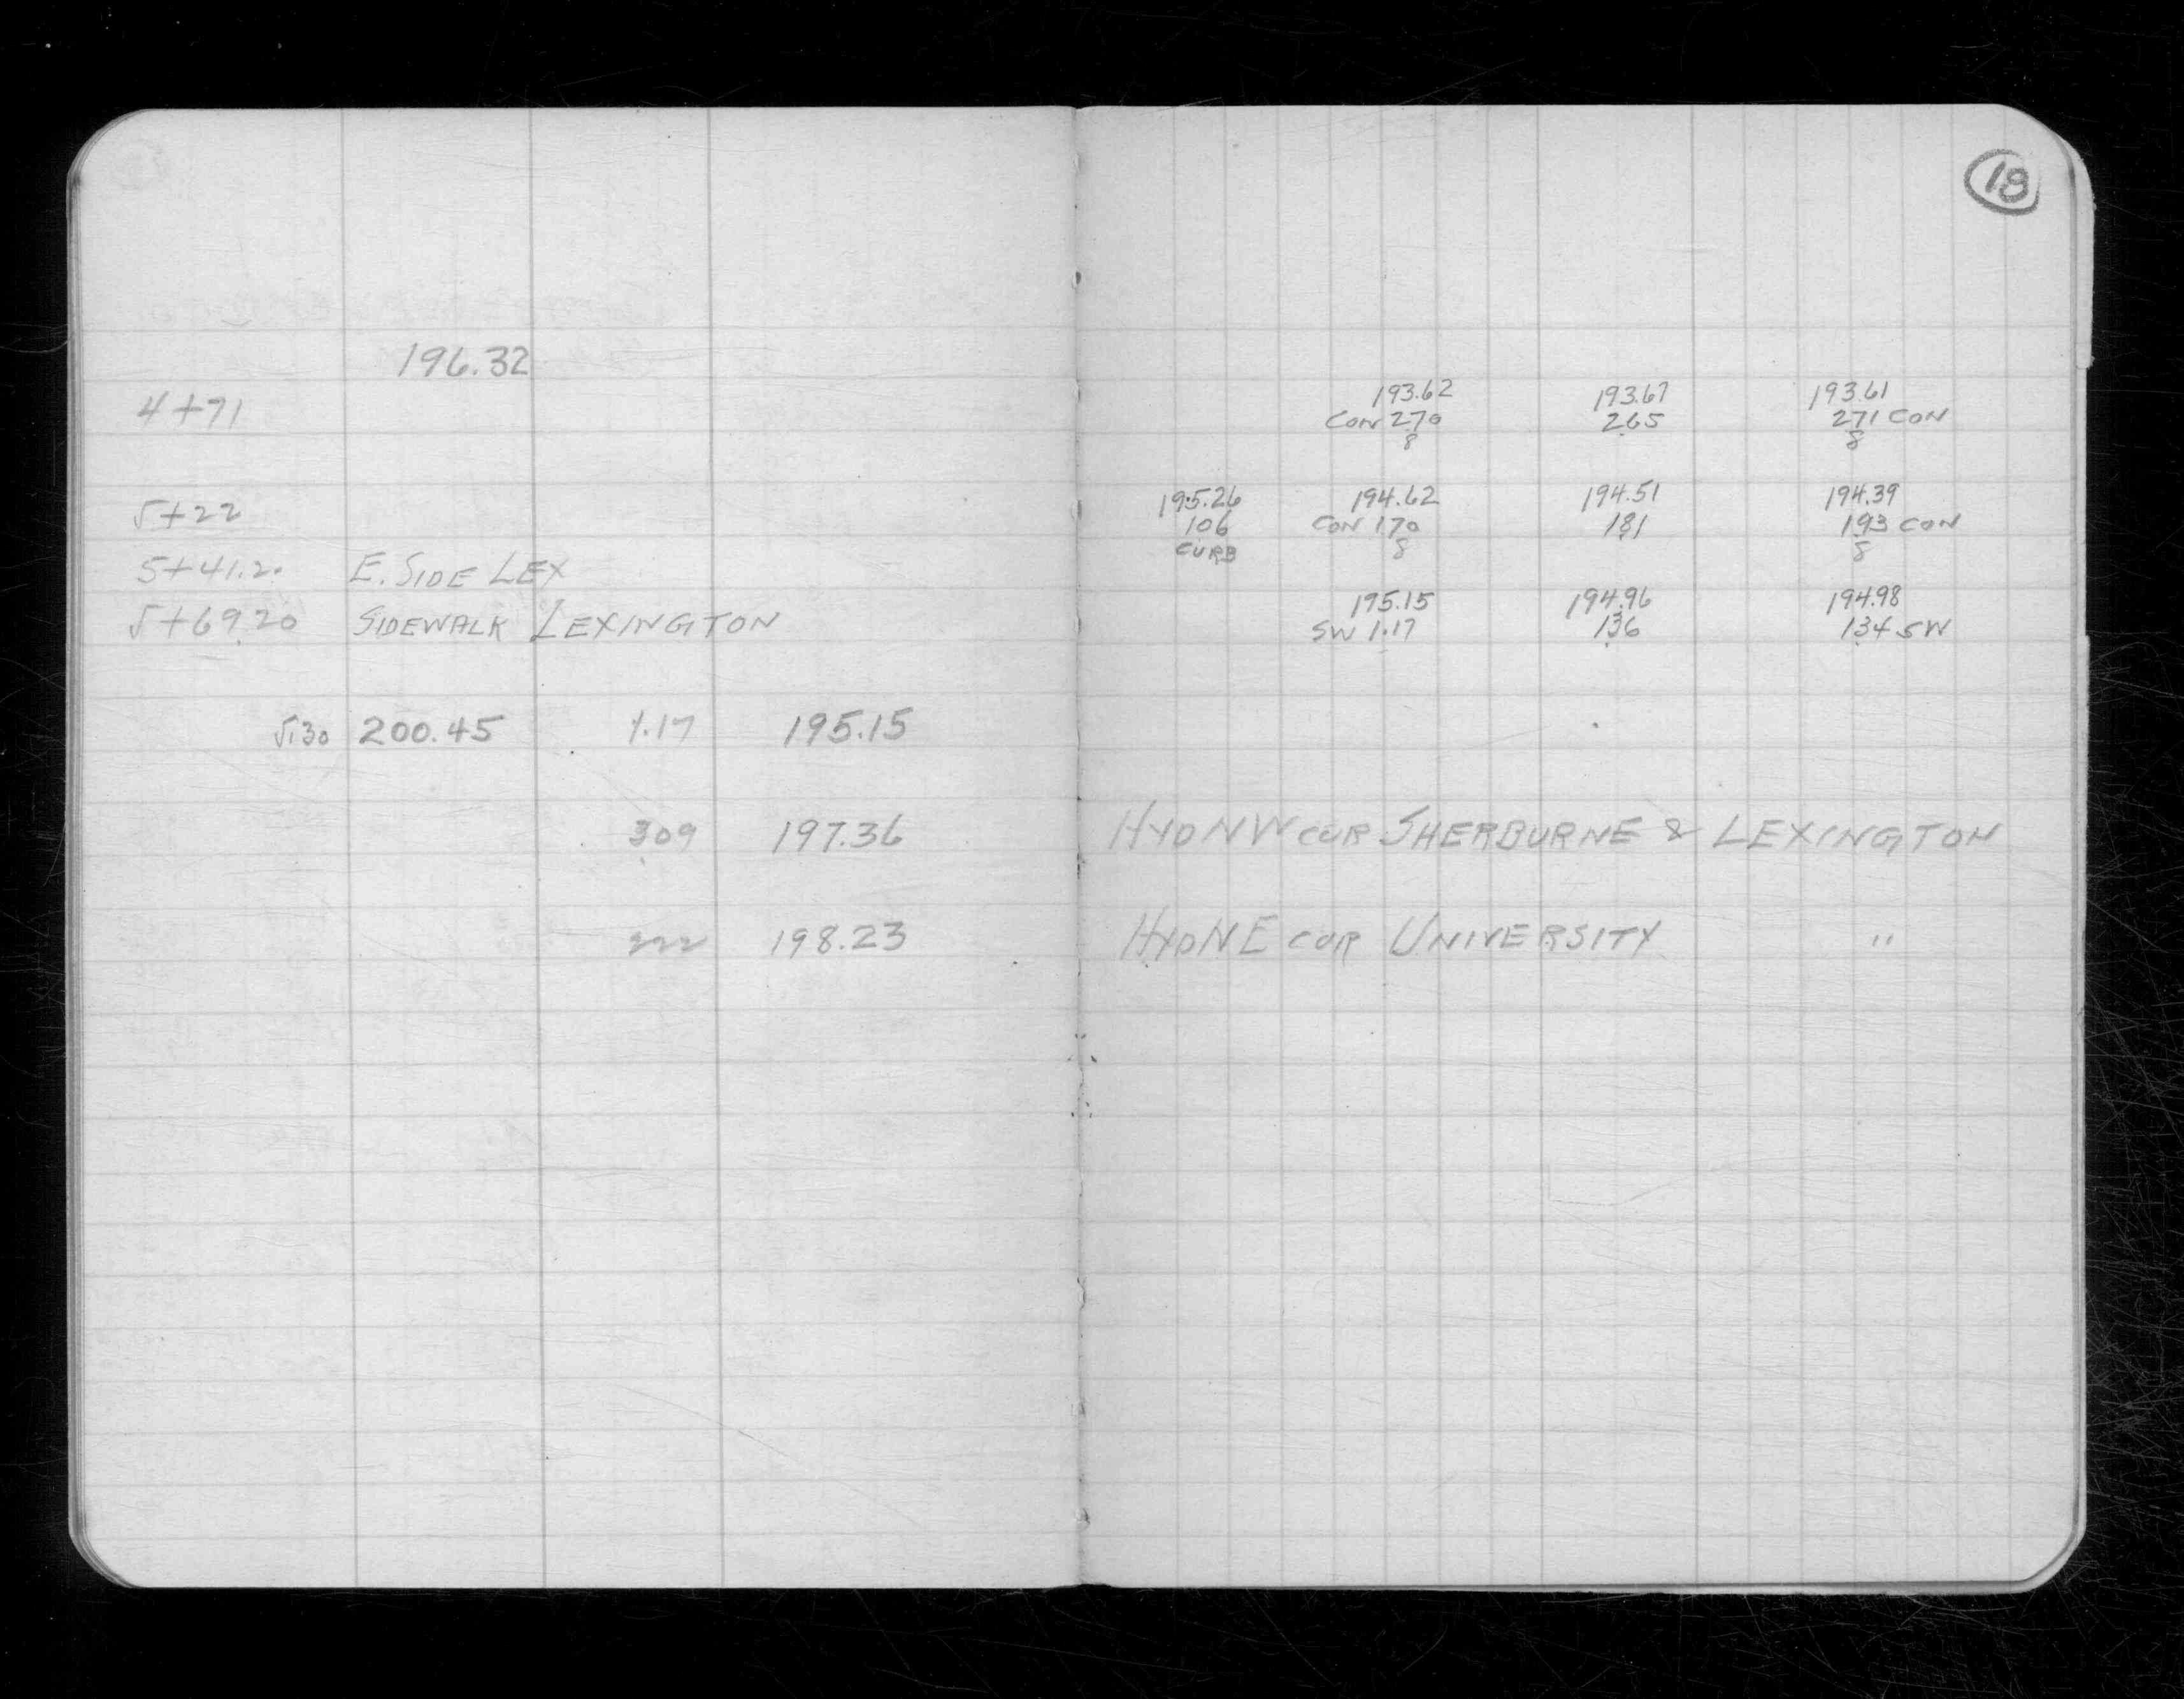 18
196.32
4+71
193.62 193.67 193.61
CON 270 265 271 CON
8 8
5+22
195.26 194.62 194.51 194.39
106 CON 170 181 193 CON
CURB 8 8
5+41.20 E. SIDE LEX
5+69.20 SIDEWALK LEXINGTON
195.15 194.96 194.98
SW 1.17 136 134 SW
5.30 200.45 1.17 195.15
309 197.36 HYD NW COR SHERBURNE & LEXINGTON
222 198.23 HYD NE COR UNIVERSITY "